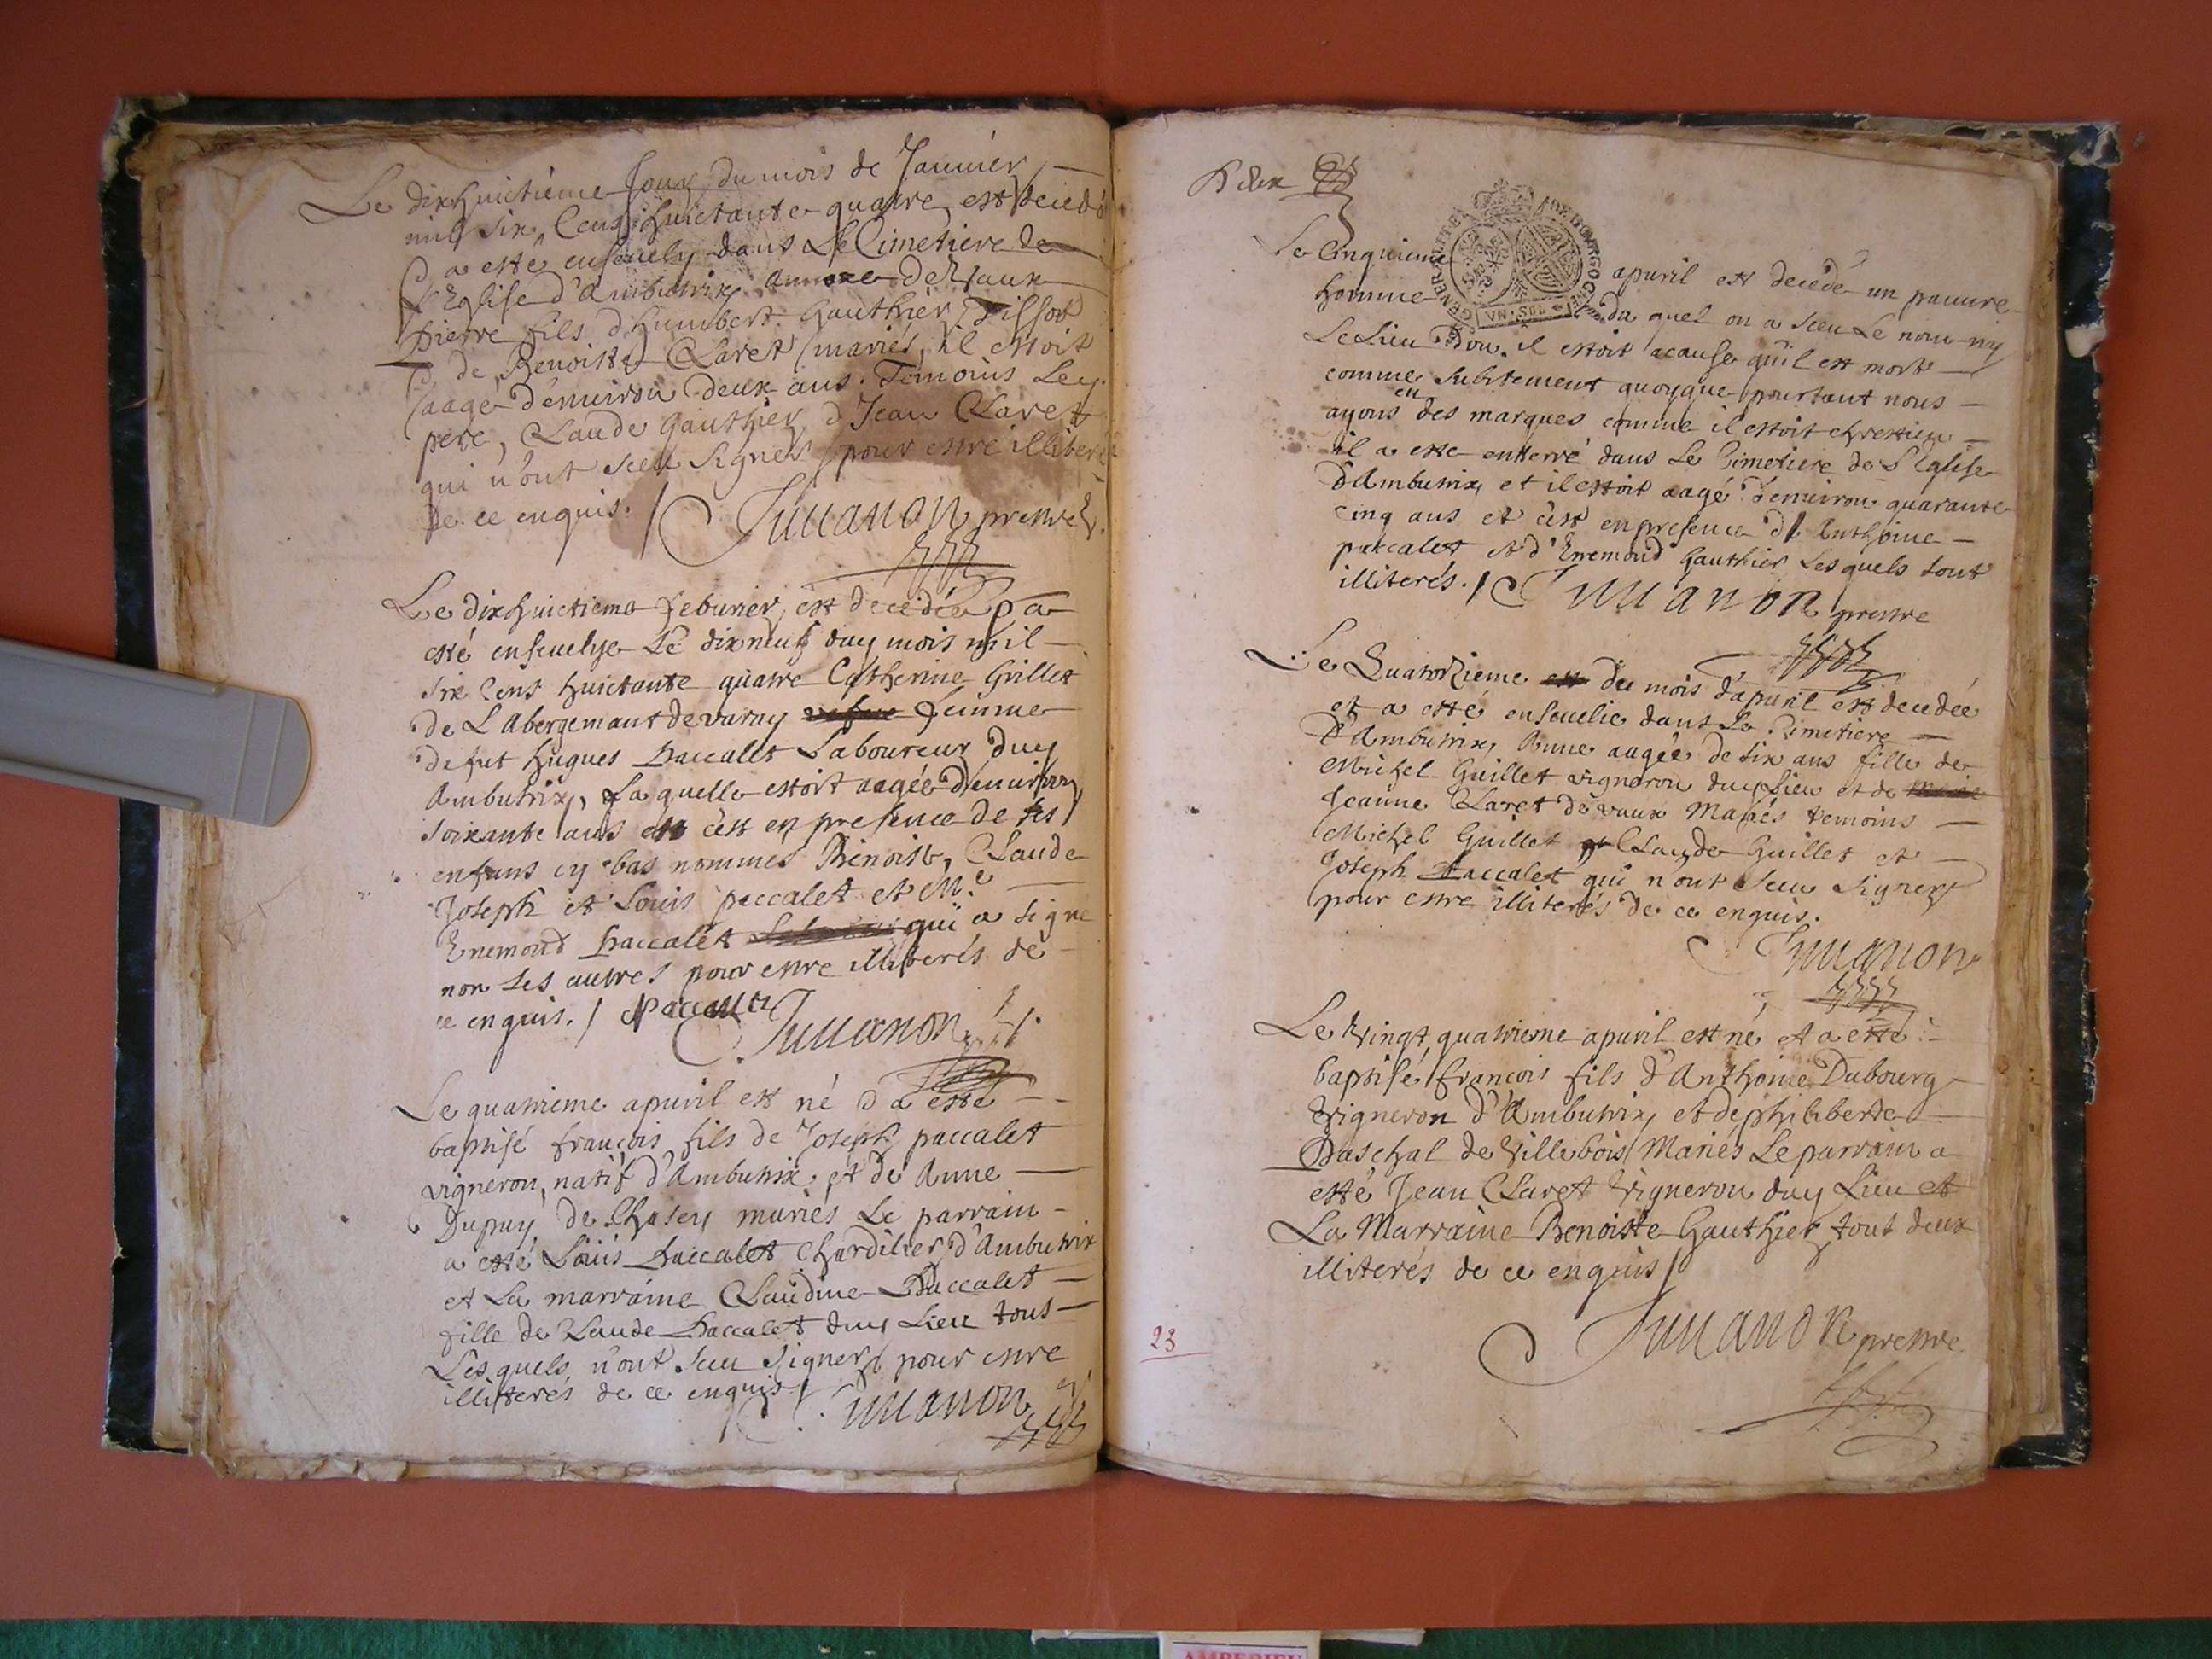 Le dixhuictiéme Jour du mois de Januier
mil six Cens huictante quatre est decedé
& a esté enseuely dans Le Cimetiere de
L'Eglise d'Ambutrix annexe de Vaux
pierre fils d'humbert Gauthier Tissot
& de Benoiste Claret mariés, il estoit
aagé d'enuiron deux ans. Temoins Ley.
pere, Claude Gauthier & Jean Claret
qui n'ont sceu signer pour estre illiterés
de ce enquis. / Juuanon prestre.
Le dixhuictieme feburier, est decedée & a
esté enseuelye Le dixneuf duy mois mil
six Cens huictante quatre Catherine Grillet
de L'Abergemant de varey femme
de fut hugues paccalet Laboureur duy
Ambutrix, La quelle estoit aagée d'enuiron
soixante ans et c'est en presence de ses
enfans cy bas nommés Benoist, Claude
Joseph et Louis paccalet et Mᵉ
Enemond paccalet qui a signe
non Les autres pour estre illiterés de
ce enquis. / Paccallet
Juuanon
Le quatrieme apuril est né & a esté
baptisé françois fils de Joseph paccalet
vigneron, natif d'Ambutrix et de Anne
Dupuy de Chasey mariés Le parrain
a esté Louis paccalet Chardilier d'Ambutrix
et La marraine Claudine Paccalet
fille de Claude paccalet duy Lieu tous
Les quels n'ont sceu signer pour estre
illiterés de ce enquis /
Juuanon
GENERALITE DE BOURGOGNE
VN·SOL
Le Cinquieme apuril est decedé un pauure
homme du quel on a sceu Le nom ny
Le Lieu d'ou il estoit acause qu'il est mort
comme subitement quoyque pourtant nous
ayons en des marques comme il estoit chrestien
il a esté enterré dans Le Cimetiere de L'Eglise
d'Ambutrix et il estoit aagé d'enuiron quarante
cinq ans et c'est en presence d'Anthoine
paccalet et d'Enemond Gauthier Lesquels sont
illiterés. / Juuanon prestre
Le Quatorzieme du mois d'apuril est decedée
et a esté enseuelie dans Le Cimetiere
d'Ambutrix, Anne aagée de six ans fille de
Michel Guillet vigneron duy Lieu et de
Jeanne Claret de vaux Mariés temoins
Michel Guillet Claude Guillet et
Joseph Paccalet qui n'ont sceu signer
pour estre illiterés de ce enquis.
Juuanon
Le Vingt quatrieme apuril est né et a esté
baptisé françois fils d'Anthoine Dubourg
Vigneron d'Ambutrix, et de philiberte
Paschal de Villebois Mariés Le parrain a
esté Jean Claret Vigneron duy Lieu et
La Marraine Benoiste Gauthier tout deux
illiterés de ce enquis /
Juuanon prestre
23
AMBERIEU